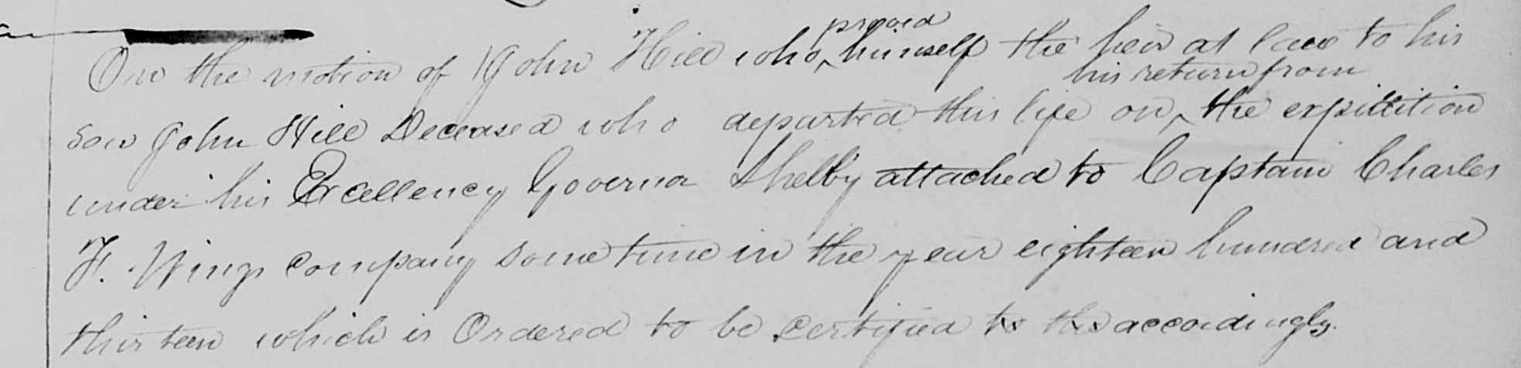 On the motion of John Hill who ^proved himself the heir at law to his
son John Hill Deceased who departed this life on ^his return from the expidition
under his Excellency Governor Shelby attached to Captain Charles
F. Wings company some time in the year eighteen hundred and
thirteen which is Ordered to be certified accordingly.